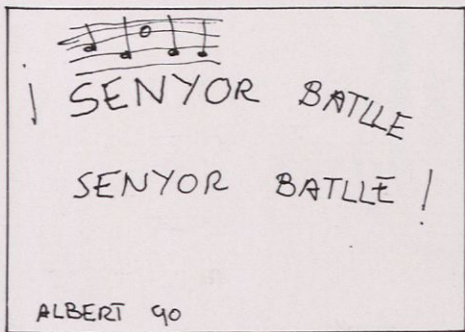 ¡ SENYOR BATLLE
SENYOR BATLLE !
ALBERT 90